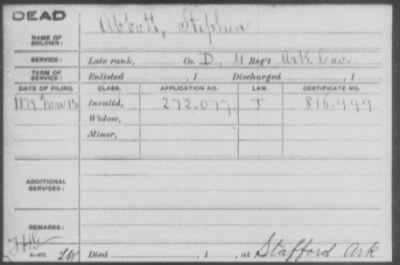 DEAD
NAME OF SOLDIER: Abbott, Stephen
SERVICE: Late rank, Co. D, 4 Reg't Ark Cav.
TERM OF SERVICE: Enlisted , 1 Discharged , 1
DATE OF FILING. CLASS. APPLICATION NO. LAW. CERTIFICATE NO.
1879 Mar 13 Invalid, 272.077 816.999
Widow,
Minor,
ADDITIONAL SERVICES:
REMARKS:
Died , 1 , at Stafford Ark